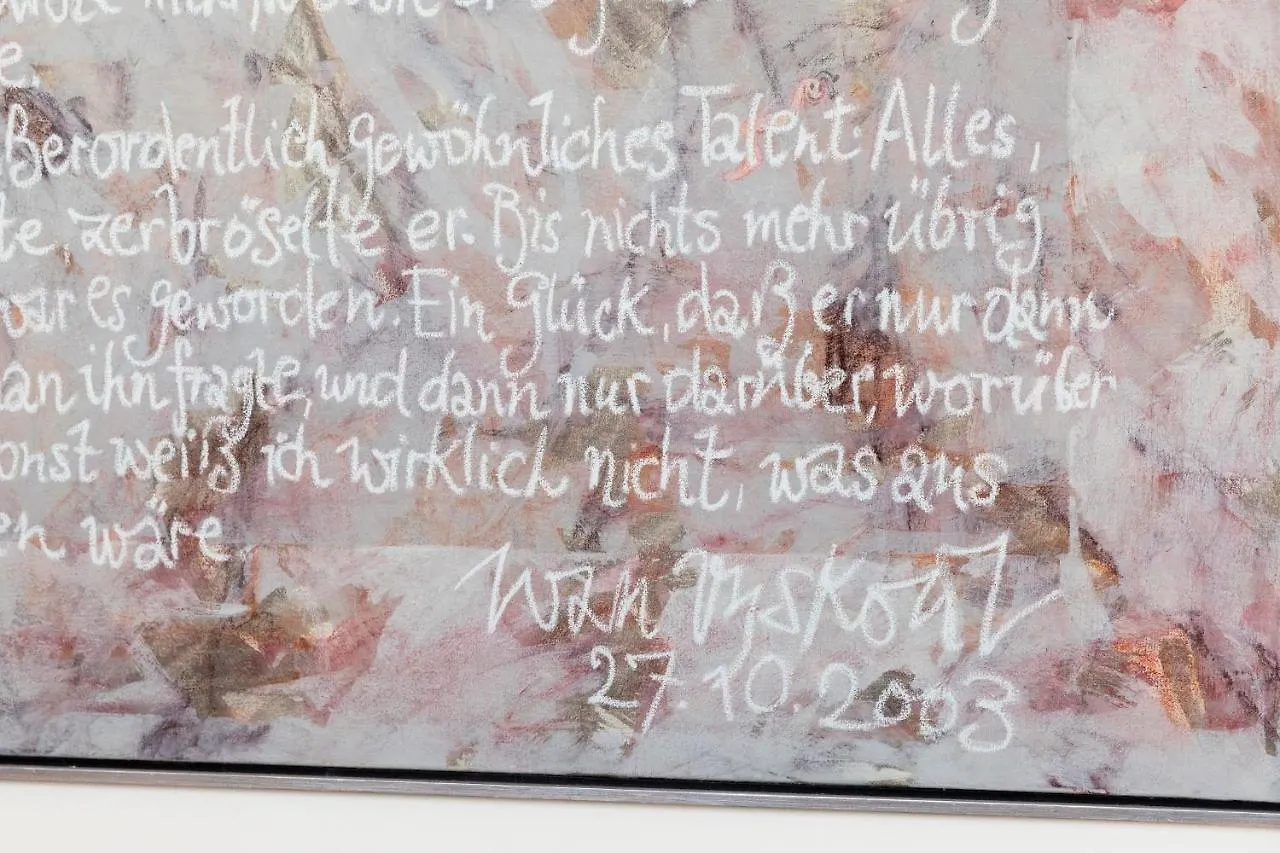 e.
ßerordentlich gewöhnliches Talent. Alles,
te, zerbröselte er. Bis nichts mehr übrig
war es geworden. Ein Glück, daß er nur dann
an ihn fragte, und dann nur darüber, worüber
onst weiß ich wirklich nicht, was aus
en wäre.
27.10.2003